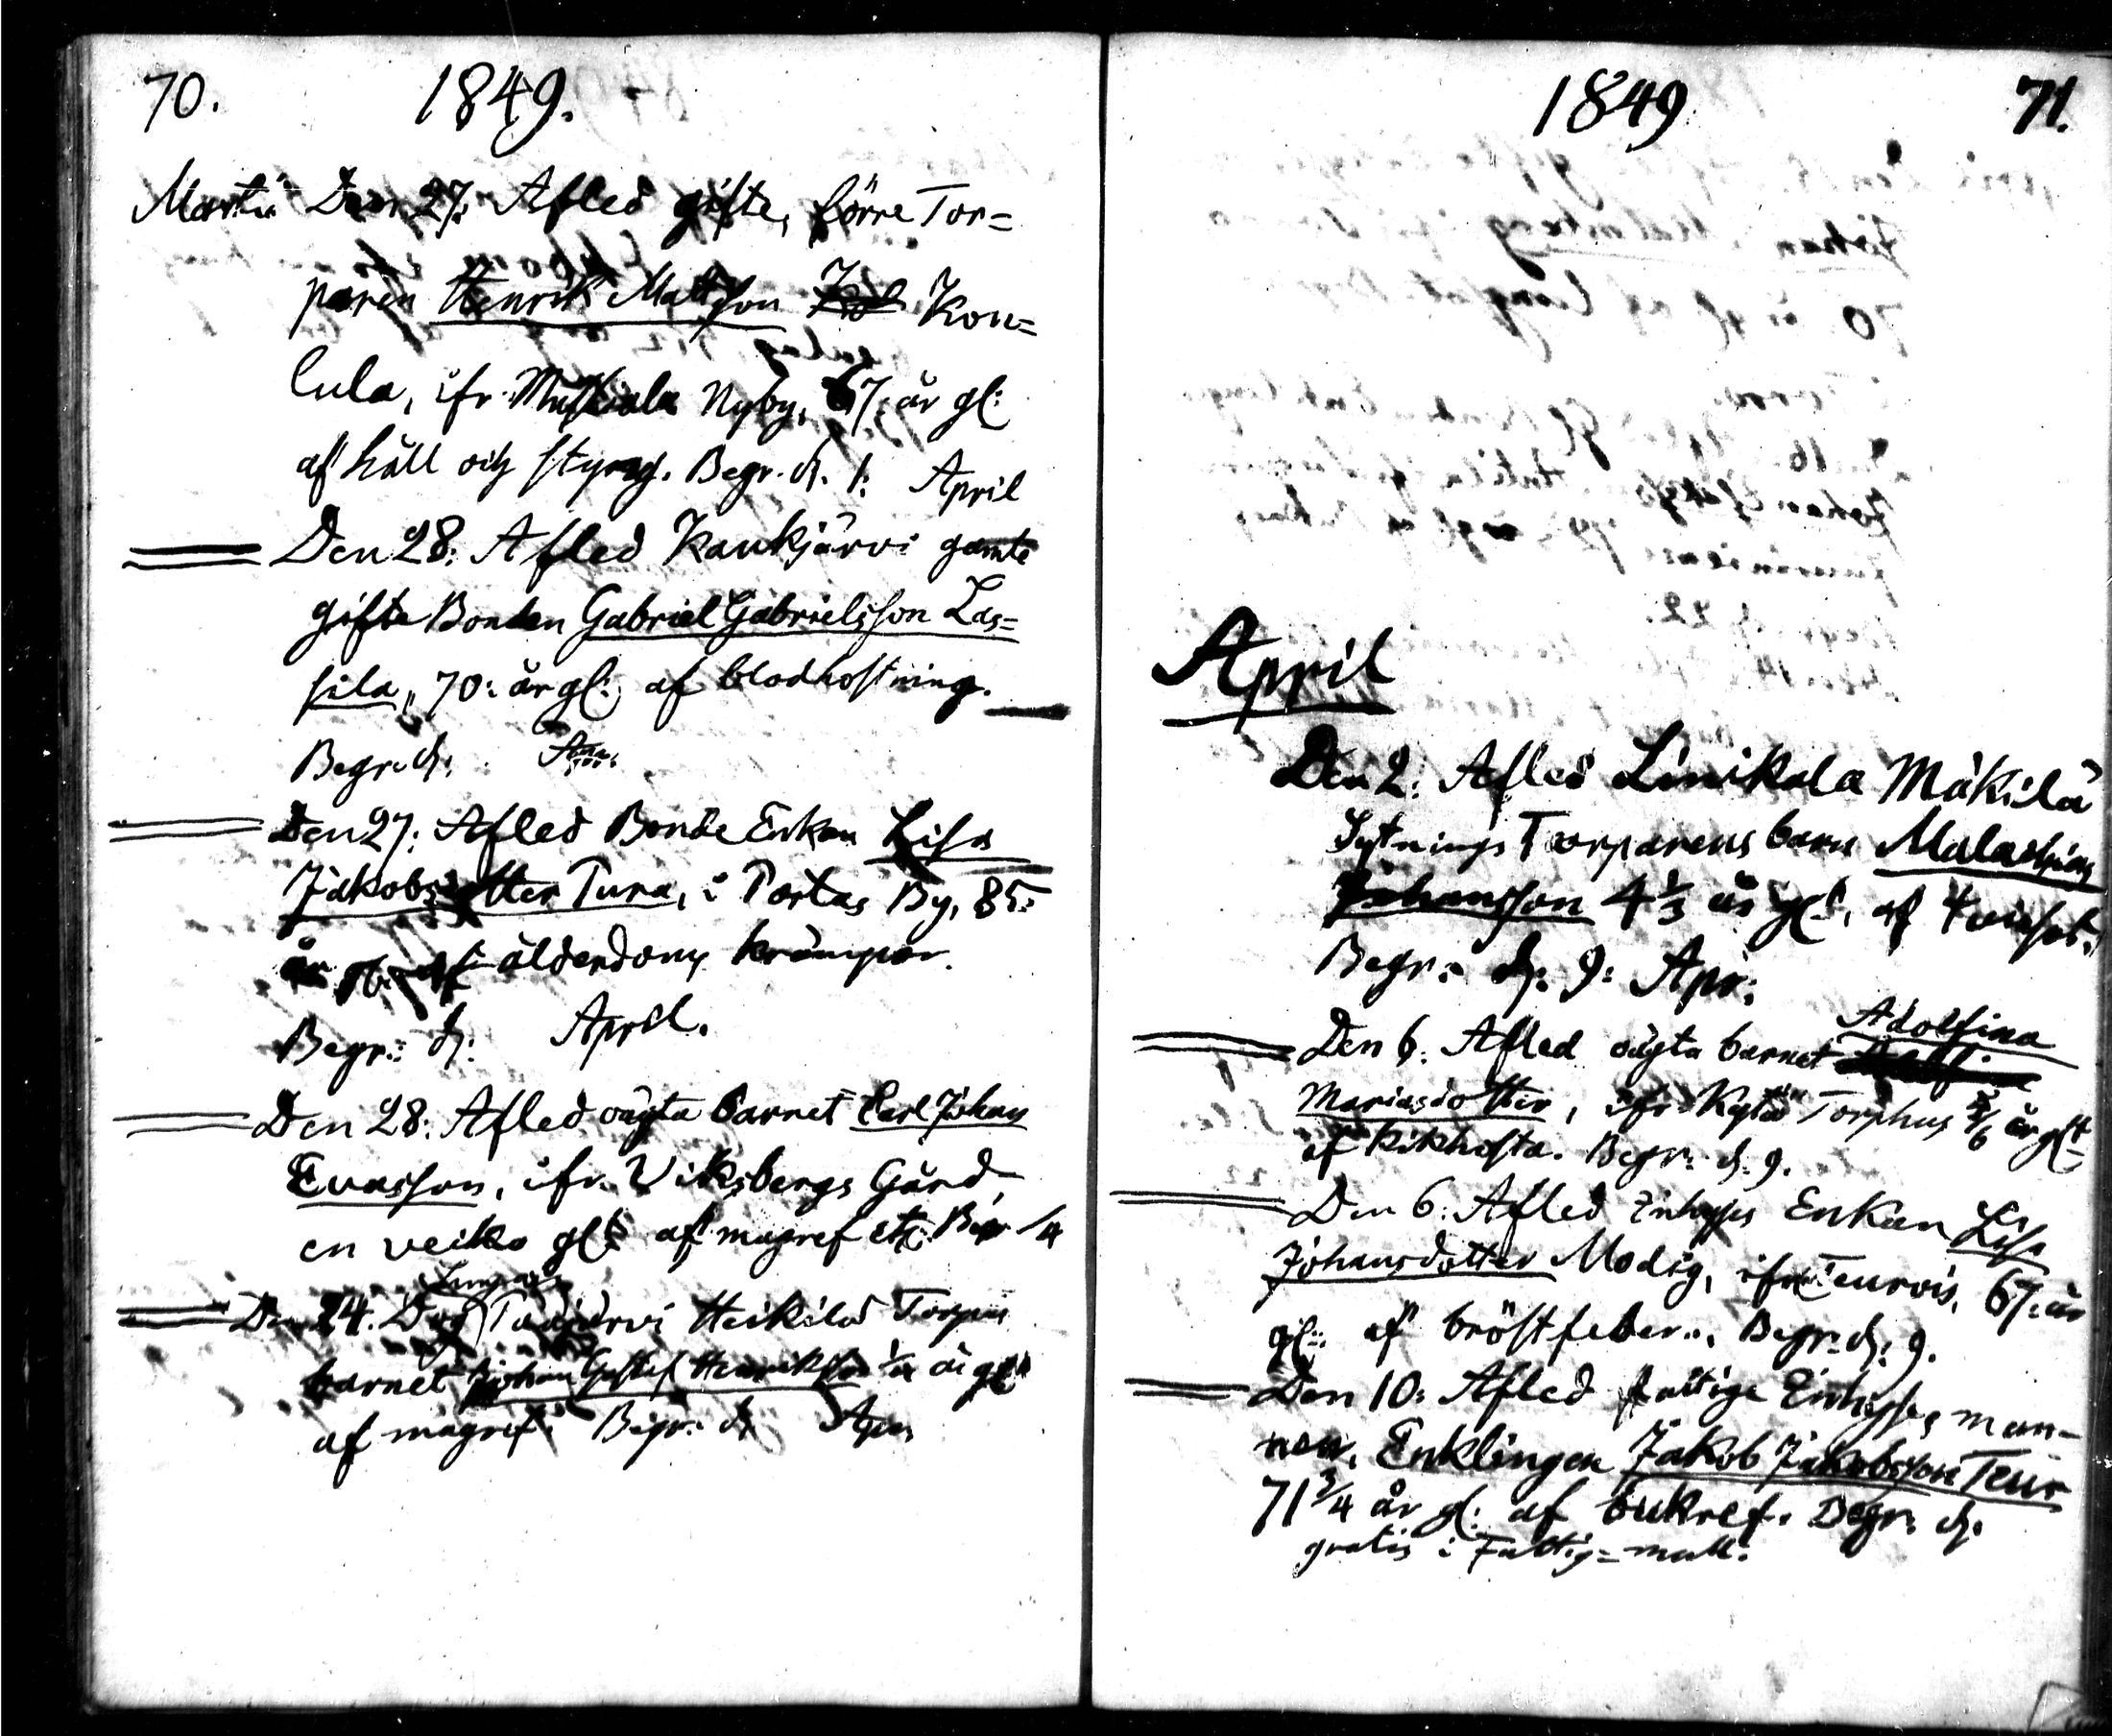 70. 1849.
Martii Den 27: Afled gifte, förre Tor=
paren Henrik Mattsson Kon=
lula, ifr. Mustiala Nyby, 67: år gl:
af håll och styng. Begr. d. 1: April
Den 28: Afled Kaukjärvi gamle
gifte Bonden Gabriel Gabrielsson Las=
sila, 70: år gl: af blodhostning.
Begr: d:
Den 27: Afled Bonde Enkan Lisa
Jakobsdotter Tura, i Portas By, 85:
år gl: af ålderdoms krämpor.
Begr: d: April.
Den 28: Afled oägta barnet Carl Johan
Evasson, ifr. Viksbergs Gård,
en vecka gl: af magref etc: Begr 1/4
Den 24. Dog Heikkilä Torpare
barnet Johan Gustaf Henriksson år gl:
af magref: Begr: d: Apr:
1849 71.
April
Den 2: Afled Linikala Mäkilä
Sytnings Torparens barn Malachias
Johansson 4 1/3 år gl:, af
Begr: d: 9: Apr:
Adolfina
Den 6: Afled oägta barnet
Mariasdotter, ifr. Kytö Torphus år gl:
af kikhosta. Begr: d. 9.
Den 6: Afled Inhyses Enkan Lisa
Johansdotter Modig, ifrån Teuro, 67: år
gl: af bröstfeber., Begr: d: 9.
Den 10: Afled fattige Inhyses man=
nen, Enklingen Jakob Jakobsson Teur
71 3/4 år gl: af bukref. Begr: d:
gratis i Fattig=mull.